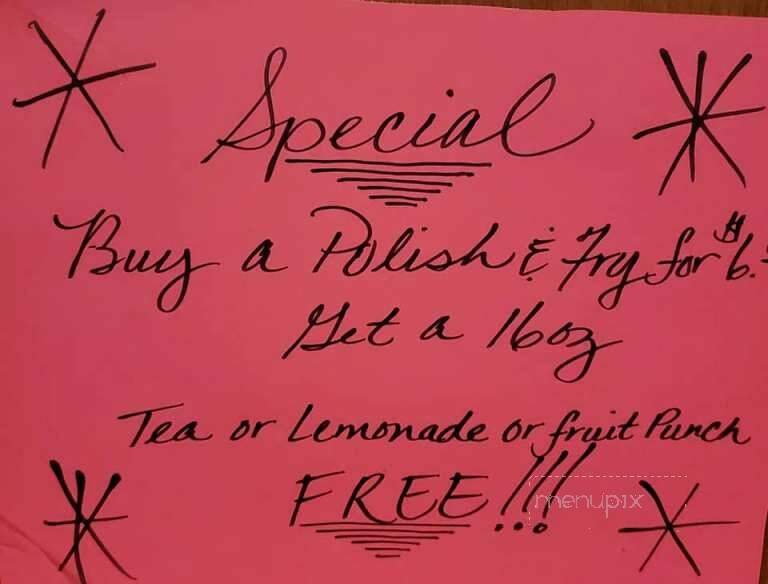 Special
Buy a Polish & Fry for $6.
Get a 16oz
Tea or Lemonade or fruit Punch
FREE!!!
menupix